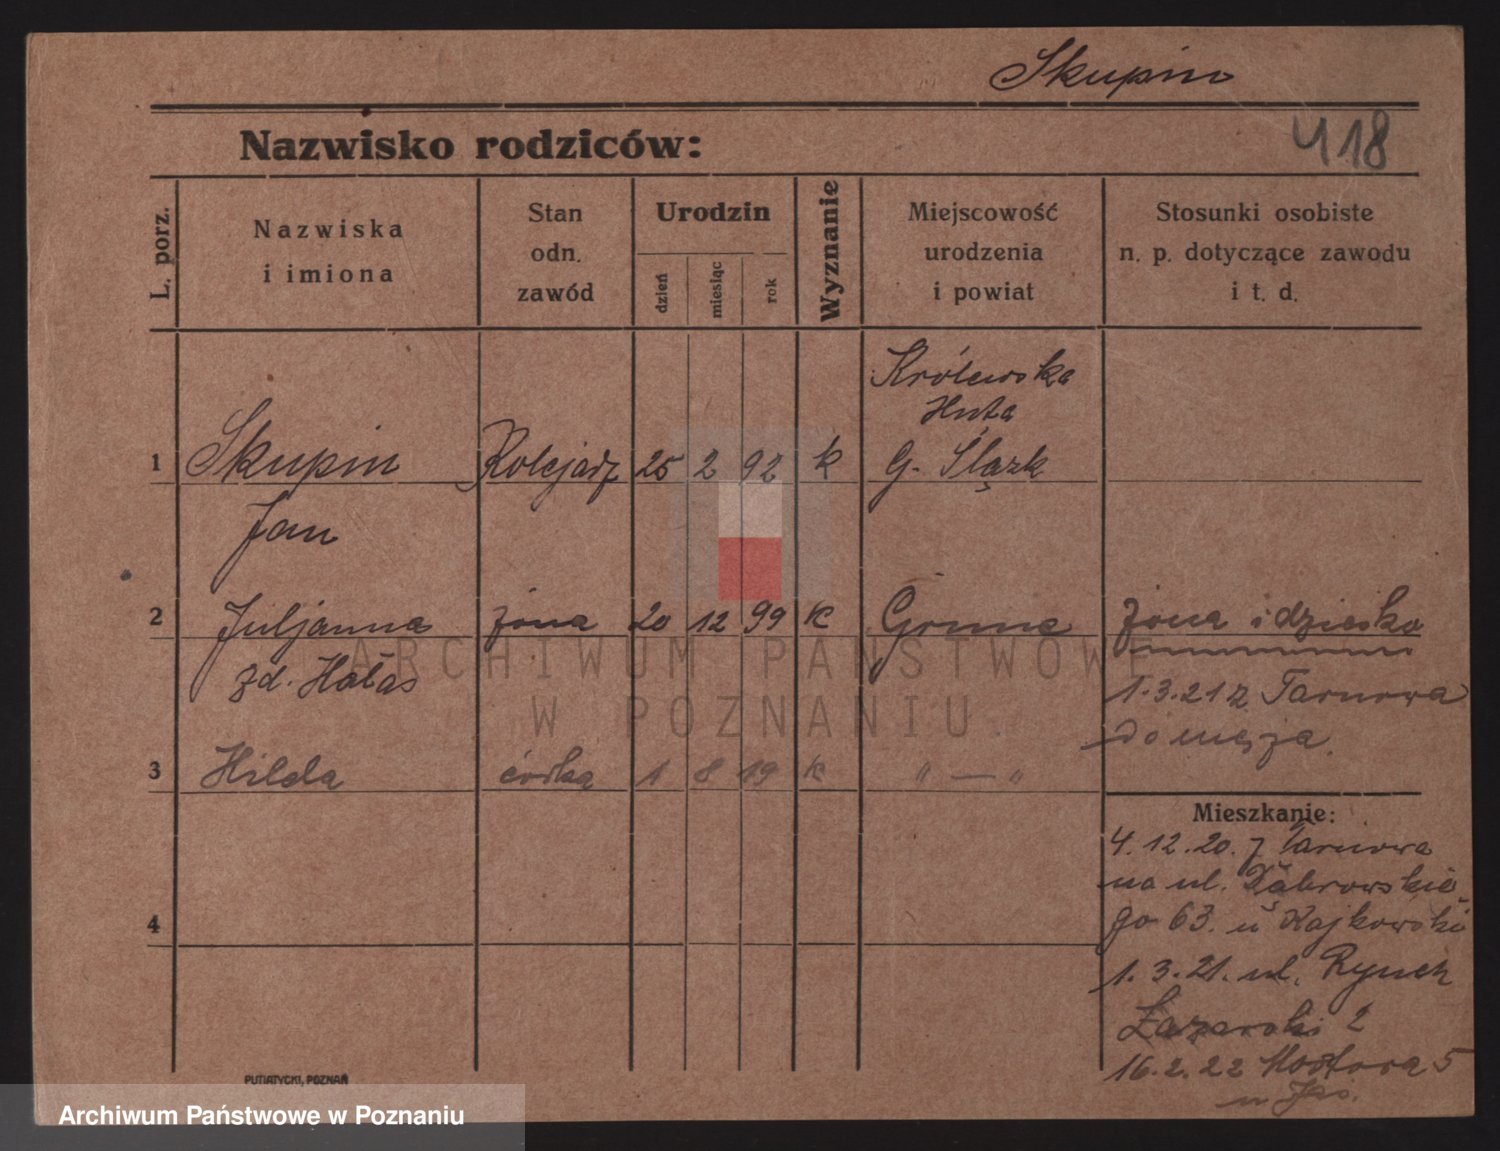 Skupin
418
Nazwisko rodziców:
L. porz.
Nazwiska
i imiona
Stan
odn.
zawód
Urodzin
dzień
miesiąc
rok
Wyznanie
Miejscowość
urodzenia
i powiat
Stosunki osobiste
n. p. dotyczące zawodu
i t. d.
Królewska
Huta
1 Skupin Kolejarz 25 2 92 k G. Ślązk
Jan
2 Juljanna żona 20 12 99 k żona i dziecko
zd. Hałas
1.3.21 z Tarnowa
do męża.
3 Hilda córka 1 8 19 k " — "
Mieszkanie:
4.12.20. z Tarnowa
na ul. Dąbrowskie
4
go 63. u Kajkowski
1.3.21. ul. Rynek
Łazarski 2
16.2.22 5
PUTIATYCKI, POZNAŃ
ARCHIWUM PAŃSTWOWE
W POZNANIU.
Archiwum Państwowe w Poznaniu